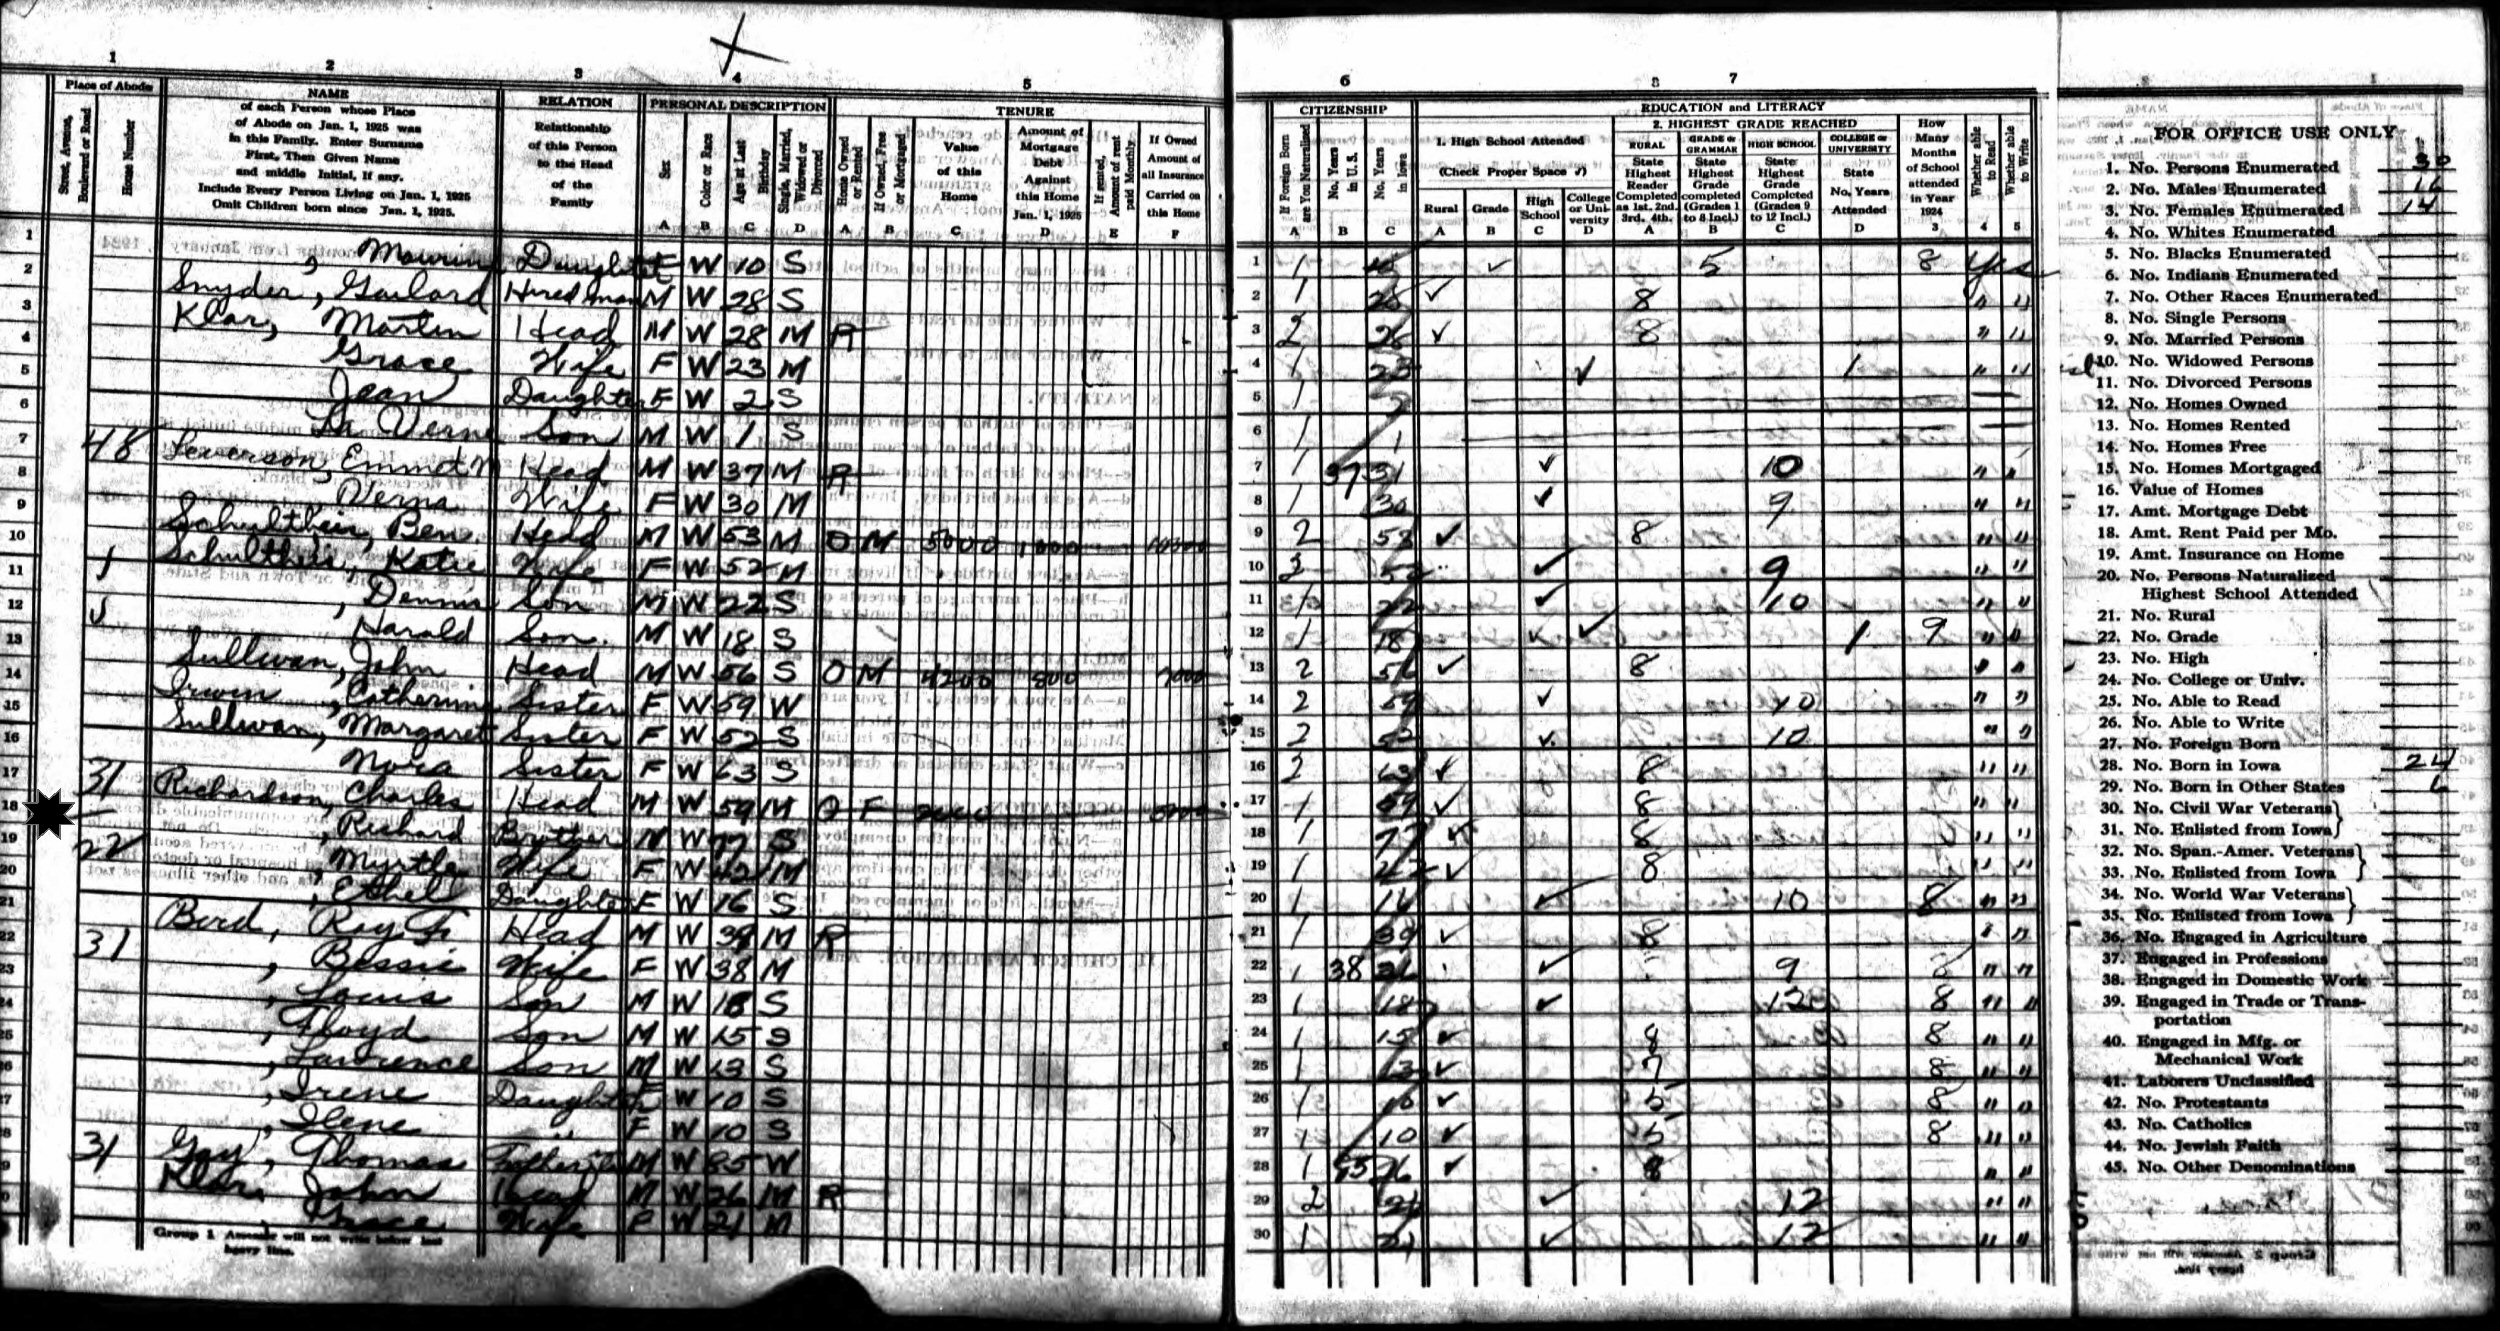 1 2 3 4 5 6 7
Place of Abode
Street, Avenue, Boulevard or Road
Home Number
NAME
of each Person whose Place
of Abode on Jan. 1, 1925 was
in this Family. Enter Surname
First, Then Given Name
and middle Initial, if any.
Include Every Person Living on Jan. 1, 1925
Omit Children born since Jan. 1, 1925.
RELATION
Relationship
of this Person
to the Head
of the
Family
PERSONAL DESCRIPTION
Sex
Color or Race
Age at Last Birthday
Single, Married, Widowed or Divorced
A B C D
TENURE
Home Owned or Rented
If Owned, Free or Mortgaged
Value of this Home
Amount of Mortgage Debt Against this Home Jan. 1, 1925
If rented, Amount of rent paid Monthly
If Owned Amount of all Insurance Carried on this Home
A B C D E F
CITIZENSHIP
If Foreign Born are You Naturalized
No. Years in U. S.
No. Years in Iowa
A B C
EDUCATION and LITERACY
1. High School Attended
(Check Proper Space ✓)
Rural Grade High School College or University
A B C D
2. HIGHEST GRADE REACHED
RURAL State Highest Reader Completed as 1st. 2nd. 3rd. 4th.
GRADE or GRAMMAR State Highest Grade completed (Grades 1 to 8 Incl.)
HIGH SCHOOL State Highest Grade Completed (Grades 9 to 12 Incl.)
COLLEGE or UNIVERSITY State No. Years Attended
A B C D
How Many Months of School attended in Year 1924
Whether able to Read
Whether able to Write
3 4 5
1 , Daughter F W 10 S 1 ✓ 5 8 Yes
2 Snyder, Gailard Hired man M W 28 S 1 28 ✓ 8 " "
3 Klar, Martin Head M W 28 M R 2 28 ✓ 8 " "
4 Grace Wife F W 23 M 1 23 ✓ 1 " "
5 Jean Daughter F W 2 S 1
6 La Verne Son M W 1 S 1 1
7 48 Severson, Emmet N Head M W 37 M R 1 37 31 ✓ 10 " "
8 Verna Wife F W 30 M 1 30 ✓ 9 " "
9 Schultheis, Ben Head M W 53 M O M 5000 1000 2 53 ✓ 8 " "
10 Schultheis, Katie Wife F W 52 M 2 52 ✓ 9 " "
11 , Dennis Son M W 22 S 1 22 ✓ 10 " "
12 Harold Son M W 18 S 1 18 ✓ ✓ 1 9 " "
13 Sullivan, John Head M W 56 S O M 4200 800 2 56 ✓ 8 " "
14 Irwin, Catherine Sister F W 59 W 2 59 ✓ 10 " "
15 Sullivan, Margaret Sister F W 52 S 2 52 ✓ 10 " "
16 Nora Sister F W 63 S 2 63 ✓ 8 " "
17 31 Richardson, Charles Head M W 59 M O F 2000 1 59 ✓ 8 " "
18 , Richard Brother M W 77 S 1 77 ✓ 8 " "
19 22 , Myrtle Wife F W 42 M 1 42 ✓ 8 " "
20 , Ethel Daughter F W 16 S 1 16 ✓ 10 8 " "
21 Bird, Ray F. Head M W 39 M R 1 39 ✓ 8 " "
22 31 , Bessie Wife F W 38 M 1 38 ✓ 9 " "
23 , Louis Son M W 18 S 1 18 ✓ 12 8 " "
24 , Floyd Son M W 15 S 1 15 ✓ 8 8 " "
25 , Lawrence Son M W 13 S 1 13 ✓ 7 8 " "
26 , Irene Daughter F W 10 S 1 10 ✓ 5 8 " "
27 , Ilene " F W 10 S 1 10 ✓ 5 8 " "
28 31 Gay, Thomas M W 85 W 1 ✓ 8 " "
29 Klar, John Head M W 26 M R 2 26 ✓ 12 " "
30 Grace Wife F W 21 M 1 21 ✓ 12 " "
Group 1 Assessor will not write below last
heavy line.
FOR OFFICE USE ONLY
1. No. Persons Enumerated 30
2. No. Males Enumerated 16
3. No. Females Enumerated 14
4. No. Whites Enumerated
5. No. Blacks Enumerated
6. No. Indians Enumerated
7. No. Other Races Enumerated
8. No. Single Persons
9. No. Married Persons
10. No. Widowed Persons
11. No. Divorced Persons
12. No. Homes Owned
13. No. Homes Rented
14. No. Homes Free
15. No. Homes Mortgaged
16. Value of Homes
17. Amt. Mortgage Debt
18. Amt. Rent Paid per Mo.
19. Amt. Insurance on Home
20. No. Persons Naturalized
Highest School Attended
21. No. Rural
22. No. Grade
23. No. High
24. No. College or Univ.
25. No. Able to Read
26. No. Able to Write
27. No. Foreign Born
28. No. Born in Iowa 24
29. No. Born in Other States 6
30. No. Civil War Veterans
31. No. Enlisted from Iowa
32. No. Span.-Amer. Veterans
33. No. Enlisted from Iowa
34. No. World War Veterans
35. No. Enlisted from Iowa
36. No. Engaged in Agriculture
37. Engaged in Professions
38. Engaged in Domestic Work
39. Engaged in Trade or Trans-
portation
40. Engaged in Mfg. or
Mechanical Work
41. Laborers Unclassified
42. No. Protestants
43. No. Catholics
44. No. Jewish Faith
45. No. Other Denominations